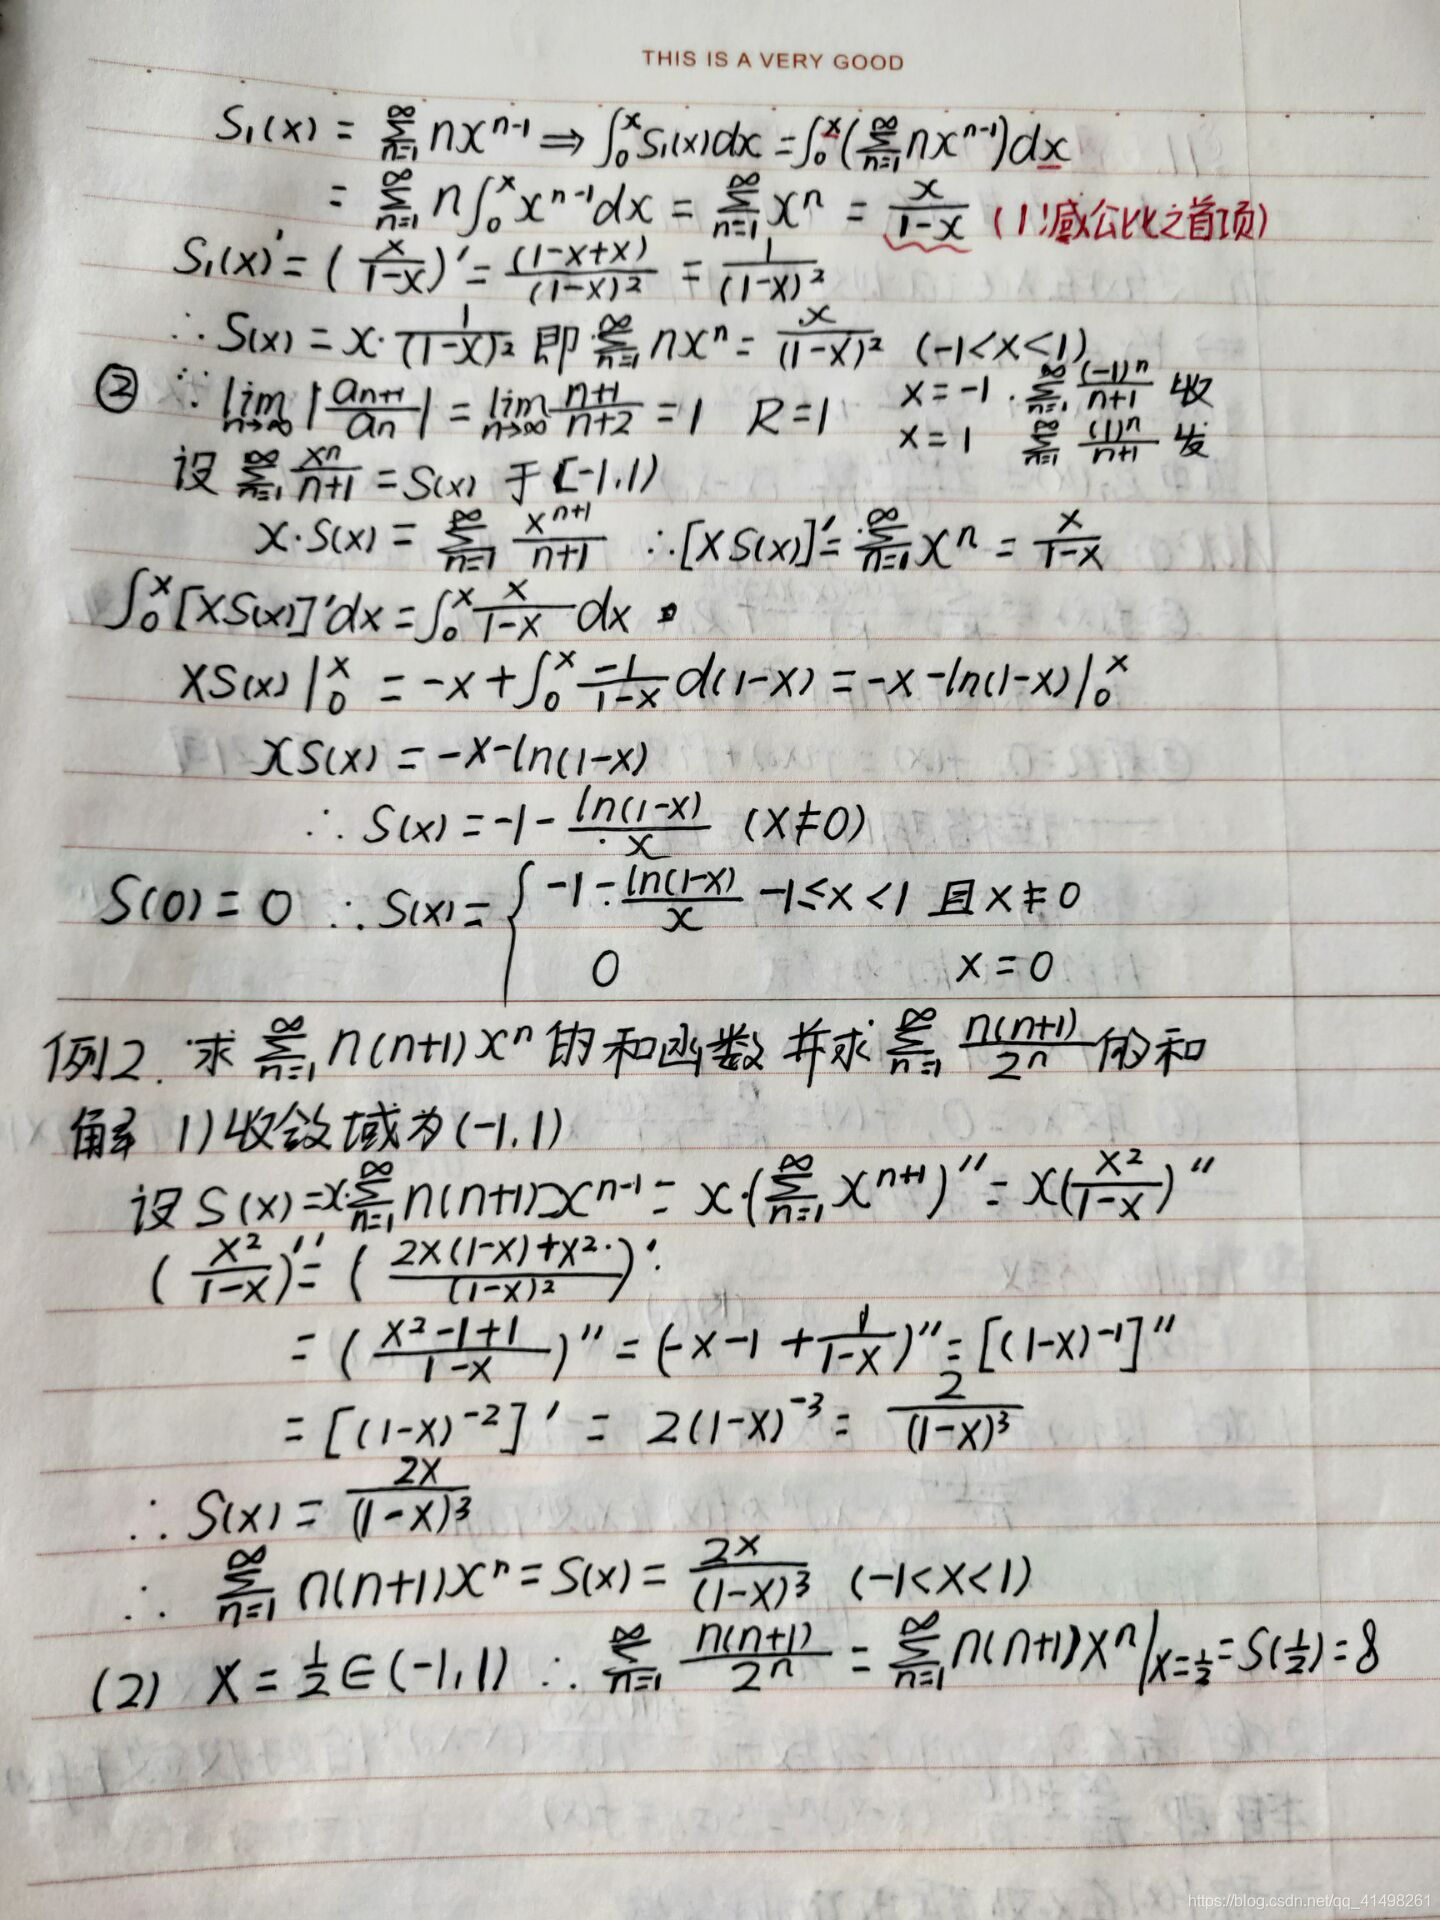 THIS IS A VERY GOOD
S₁(x) = ∑_{n=1}^{∞} nx^{n-1} ⇒ ∫₀ˣ S₁(x)dx = ∫₀ˣ (∑_{n=1}^{∞} nx^{n-1})dx
= ∑_{n=1}^{∞} n∫₀ˣ x^{n-1}dx = ∑_{n=1}^{∞} xⁿ = x/(1-x) (1减公比之首项)
S₁(x)' = (x/(1-x))' = (1-x+x)/(1-x)² = 1/(1-x)²
∴ S(x) = x·1/(1-x)² 即 ∑_{n=1}^{∞} nxⁿ = x/(1-x)² (-1<x<1)
② ∵ lim_{n→∞} |a_{n+1}/a_n| = lim_{n→∞} (n+1)/(n+2) = 1 R=1 x=-1 . ∑_{n=1}^{∞} (-1)ⁿ/(n+1) 收
x=1 ∑_{n=1}^{∞} (1)ⁿ/(n+1) 发
设 ∑_{n=1}^{∞} xⁿ/(n+1) = S(x) 于 [-1,1)
x·S(x) = ∑_{n=1}^{∞} x^{n+1}/(n+1) ∴ [xS(x)]' = ∑_{n=1}^{∞} xⁿ = x/(1-x)
∫₀ˣ [xS(x)]'dx = ∫₀ˣ x/(1-x) dx
xS(x)|₀ˣ = -x + ∫₀ˣ -1/(1-x) d(1-x) = -x -ln(1-x)|₀ˣ
xS(x) = -x-ln(1-x)
∴ S(x) = -1 - ln(1-x)/x (x≠0)
S(0) = 0 ∴ S(x) = { -1 - ln(1-x)/x -1≤x<1 且 x≠0
0 x=0
例2. 求 ∑_{n=1}^{∞} n(n+1)xⁿ 的和函数并求 ∑_{n=1}^{∞} n(n+1)/2ⁿ 的和
解 1)收敛域为(-1,1)
设 S(x) = x·∑_{n=1}^{∞} n(n+1)x^{n-1} = x·(∑_{n=1}^{∞} x^{n+1})'' = x(x²/(1-x))''
(x²/(1-x))'' = ((2x(1-x)+x²·)/(1-x)²)'
= ((x²-1+1)/(1-x))'' = (-x-1 + 1/(1-x))'' = [(1-x)^{-1}]''
= [(1-x)^{-2}]' = 2(1-x)^{-3} = 2/(1-x)³
∴ S(x) = 2x/(1-x)³
∴ ∑_{n=1}^{∞} n(n+1)xⁿ = S(x) = 2x/(1-x)³ (-1<x<1)
(2) x = 1/2 ∈ (-1,1) ∴ ∑_{n=1}^{∞} n(n+1)/2ⁿ = ∑_{n=1}^{∞} n(n+1)xⁿ|_{x=1/2} = S(1/2) = 8
https://blog.csdn.net/qq_41498261